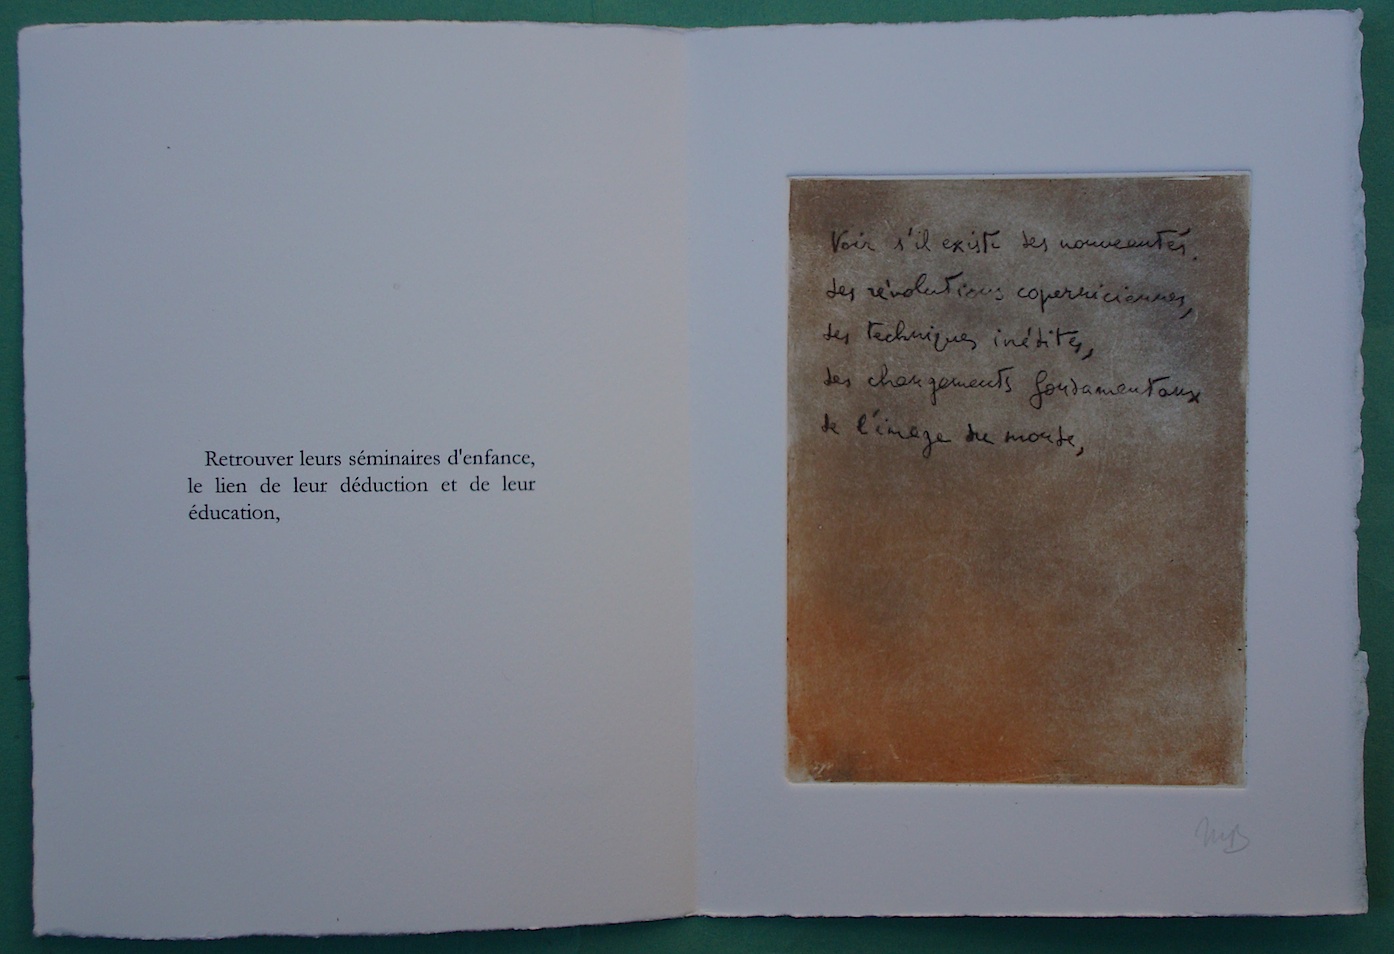 Retrouver leurs séminaires d'enfance,
le lien de leur déduction et de leur
éducation,
Voir s'il existe des nouveautés.
des révolutions coperniciennes,
des techniques inédites,
des changements fondamentaux
de l'image du monde,
MB